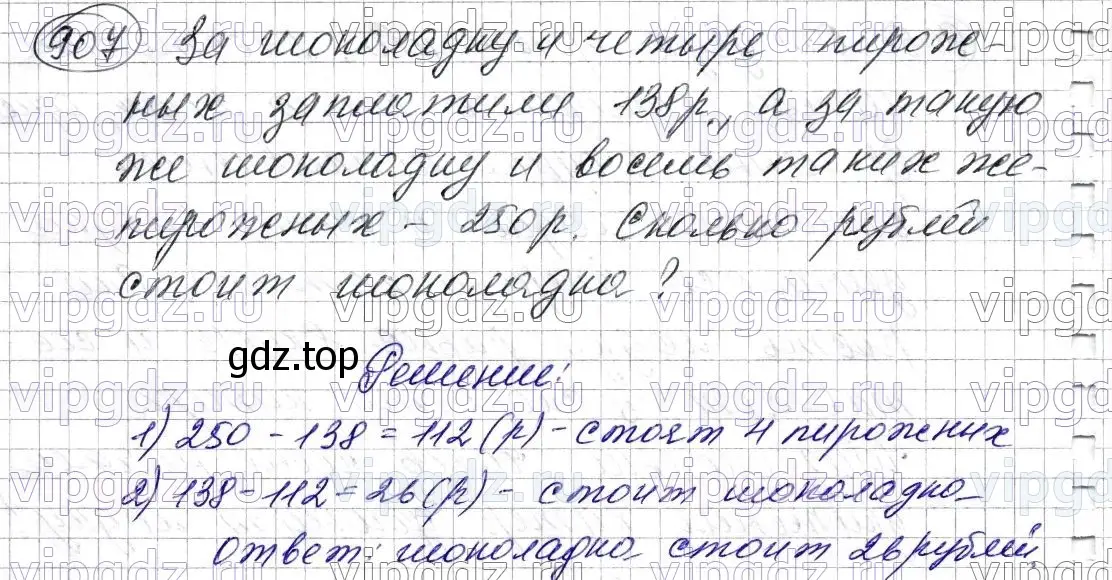 907 За шоколадку и четыре пирож-
ных заплатили 138р., а за такую
же шоколадку и восемь таких же-
пирожных - 250р. Сколько рублей
стоит шоколадка?
gdz.top
Решение:
1) 250 - 138 = 112 (р) - стоят 4 пирожных
2) 138 - 112 = 26 (р) - стоит шоколадка
ответ: шоколадка стоит 26 рублей,